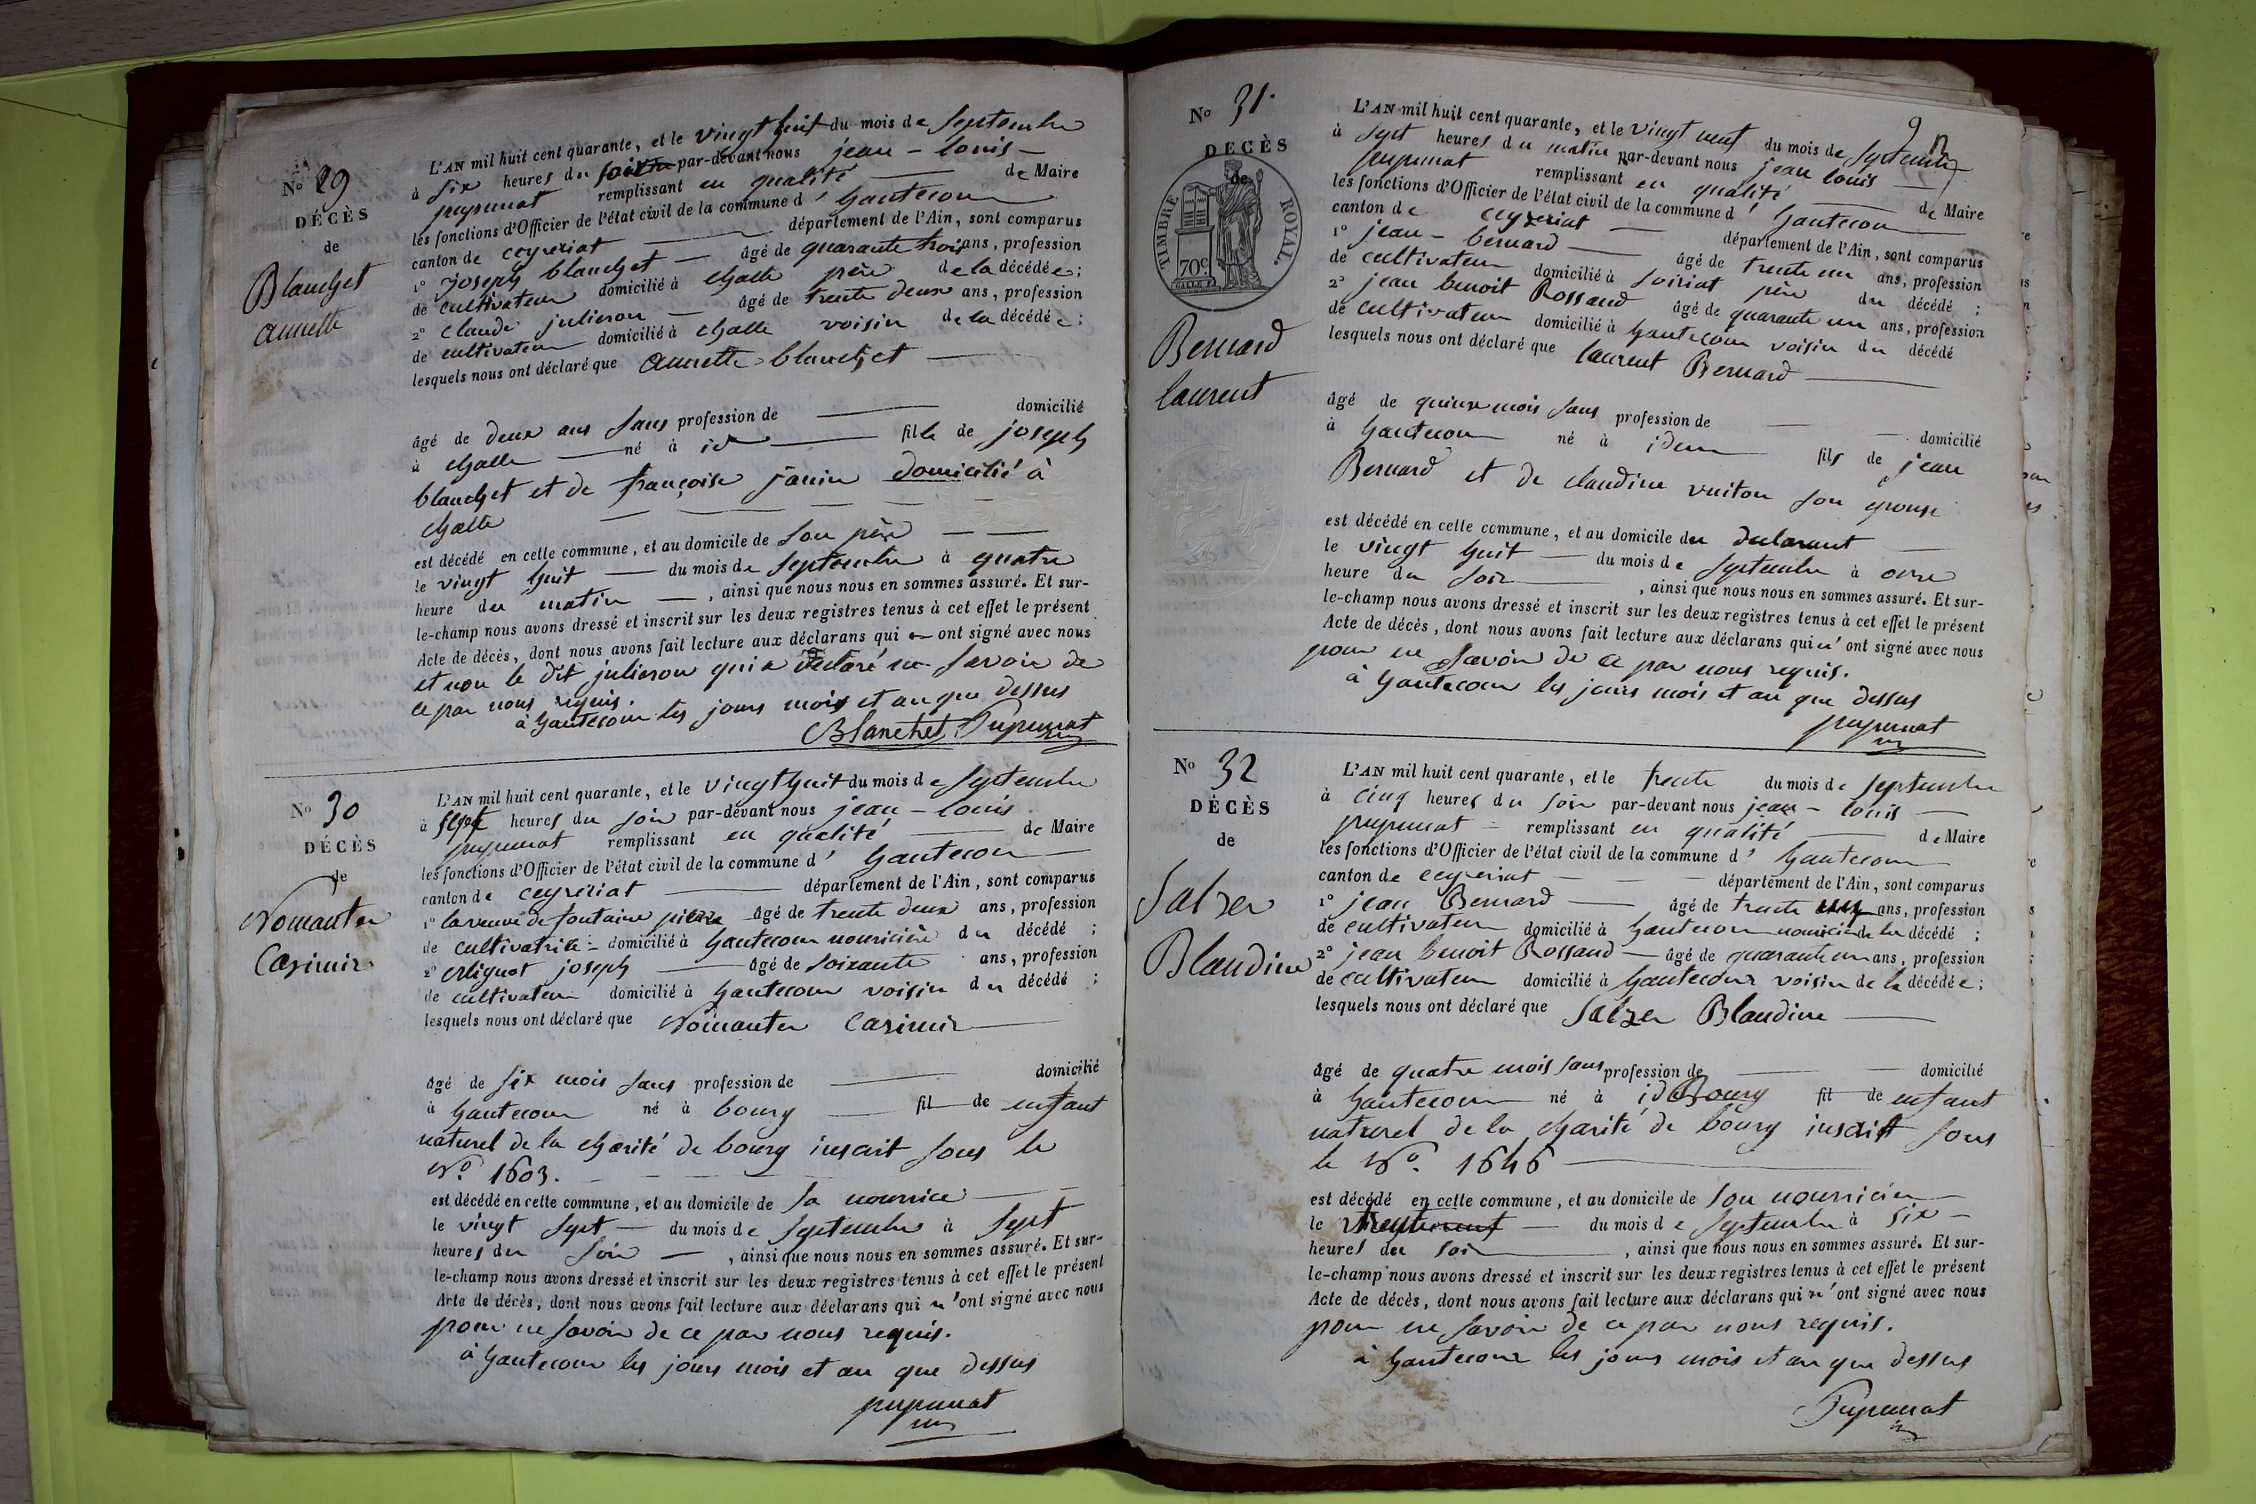 No 29
DÉCÈS
de
Blanchet
annette
L'AN mil huit cent quarante, et le vingt huit du mois de Septembre
à Six heures du soir par-devant nous jean - louis -
pupunat remplissant en qualité de Maire
les fonctions d'Officier de l'état civil de la commune d' hautecour
canton de ceyzeriat département de l'Ain, sont comparus
1° joseph blanchet âgé de quarante trois ans, profession
de cultivateur domicilié à Challe père de la décédée;
2° Claude julieron âgé de trente deux ans, profession
de cultivateur domicilié à challe voisin de la décédée;
lesquels nous ont déclaré que annette blanchet
âgé de deux ans sans profession de domicilié
à challe né à id fille de joseph
blanchet et de françoise janin domicilié à
challe
est décédé en cette commune, et au domicile de son père
le vingt huit du mois de septembre à quatre
heure du matin, ainsi que nous nous en sommes assuré. Et sur-
le-champ nous avons dressé et inscrit sur les deux registres tenus à cet effet le présent
Acte de décès, dont nous avons fait lecture aux déclarans qui ont signé avec nous
et non le dit julieron qui a déclaré ne savoir de
ce par nous requis.
à hautecour les jours mois et an que dessus
Blanchet Pupunat
No 30
DÉCÈS
de
Nomanter
Casimir
L'AN mil huit cent quarante, et le vingt huit du mois de septembre
à sept heures du soir par-devant nous jean - louis
pupunat remplissant en qualité de Maire
les fonctions d'Officier de l'état civil de la commune d' hautecour
canton de ceyzeriat département de l'Ain, sont comparus
1° la veuve de fontaine pierre âgé de trente deux ans, profession
de cultivatrice domicilié à hautecour nouricière du décédé;
2° Mignot joseph âgé de soixante ans, profession
de cultivateur domicilié à hautecour voisin du décédé;
lesquels nous ont déclaré que Nomanter Casimir
âgé de six mois sans profession de domicilié
à hautecour né à bourg fil de enfant
naturel de la charité de bourg inscrit sous le
No. 1603.
est décédé en cette commune, et au domicile de sa nourrice
le vingt sept du mois de septembre à sept
heures du soir, ainsi que nous nous en sommes assuré. Et sur-
le-champ nous avons dressé et inscrit sur les deux registres tenus à cet effet le présent
Acte de décès, dont nous avons fait lecture aux déclarans qui n'ont signé avec nous
pour ne savoir de ce par nous requis.
à hautecour les jours mois et an que dessus
pupunat
No 31.
DÉCÈS
de
TIMBRE ROYAL.
70c
Bernard
laurent
L'AN mil huit cent quarante, et le vingt neuf du mois de septembre
à sept heures du matin par-devant nous jean louis
pupunat remplissant en qualité de Maire
les fonctions d'Officier de l'état civil de la commune d' hautecour
canton de ceyzeriat département de l'Ain, sont comparus
1° jean - bernard âgé de trente un ans, profession
de cultivateur domicilié à soiriat père du décédé;
2° jean benoit Rossand âgé de quarante un ans, profession
de cultivateur domicilié à hautecour voisin du décédé
lesquels nous ont déclaré que laurent Bernard
âgé de quinze mois sans profession de domicilié
à hautecour né à idem fils de jean
Bernard et de claudine vuiton son épouse
est décédé en cette commune, et au domicile du declarant
le vingt huit du mois de septembre à onze
heure du soir, ainsi que nous nous en sommes assuré. Et sur-
le-champ nous avons dressé et inscrit sur les deux registres tenus à cet effet le présent
Acte de décès, dont nous avons fait lecture aux déclarans qui n'ont signé avec nous
pour ne savoir de ce par nous requis.
à hautecour les jours mois et an que dessus
pupunat
No 32
DÉCÈS
de
Salzer
Blandine
L'AN mil huit cent quarante, et le trente du mois de septembre
à cinq heures du soir par-devant nous jean - louis
pupunat remplissant en qualité de Maire
les fonctions d'Officier de l'état civil de la commune d' hautecour
canton de ceyzeriat département de l'Ain, sont comparus
1° jean Bernard âgé de trente ans, profession
de cultivateur domicilié à hautecour de la décédé;
2° jean benoit Rossand âgé de quarante un ans, profession
de cultivateur domicilié à hautecour voisin de la décédée;
lesquels nous ont déclaré que Salzer Blandine
âgé de quatre mois sans profession de domicilié
à hautecour né à id Bourg fil de enfant
naturel de la charité de bourg inscrit sous
le No. 1646
est décédé en cette commune, et au domicile de son nourricier
le du mois de septembre à six
heures du soir, ainsi que nous nous en sommes assuré. Et sur-
le-champ nous avons dressé et inscrit sur les deux registres tenus à cet effet le présent
Acte de décès, dont nous avons fait lecture aux déclarans qui n'ont signé avec nous
pour ne savoir de ce par nous requis.
à hautecour les jours mois et an que dessus
Pupunat